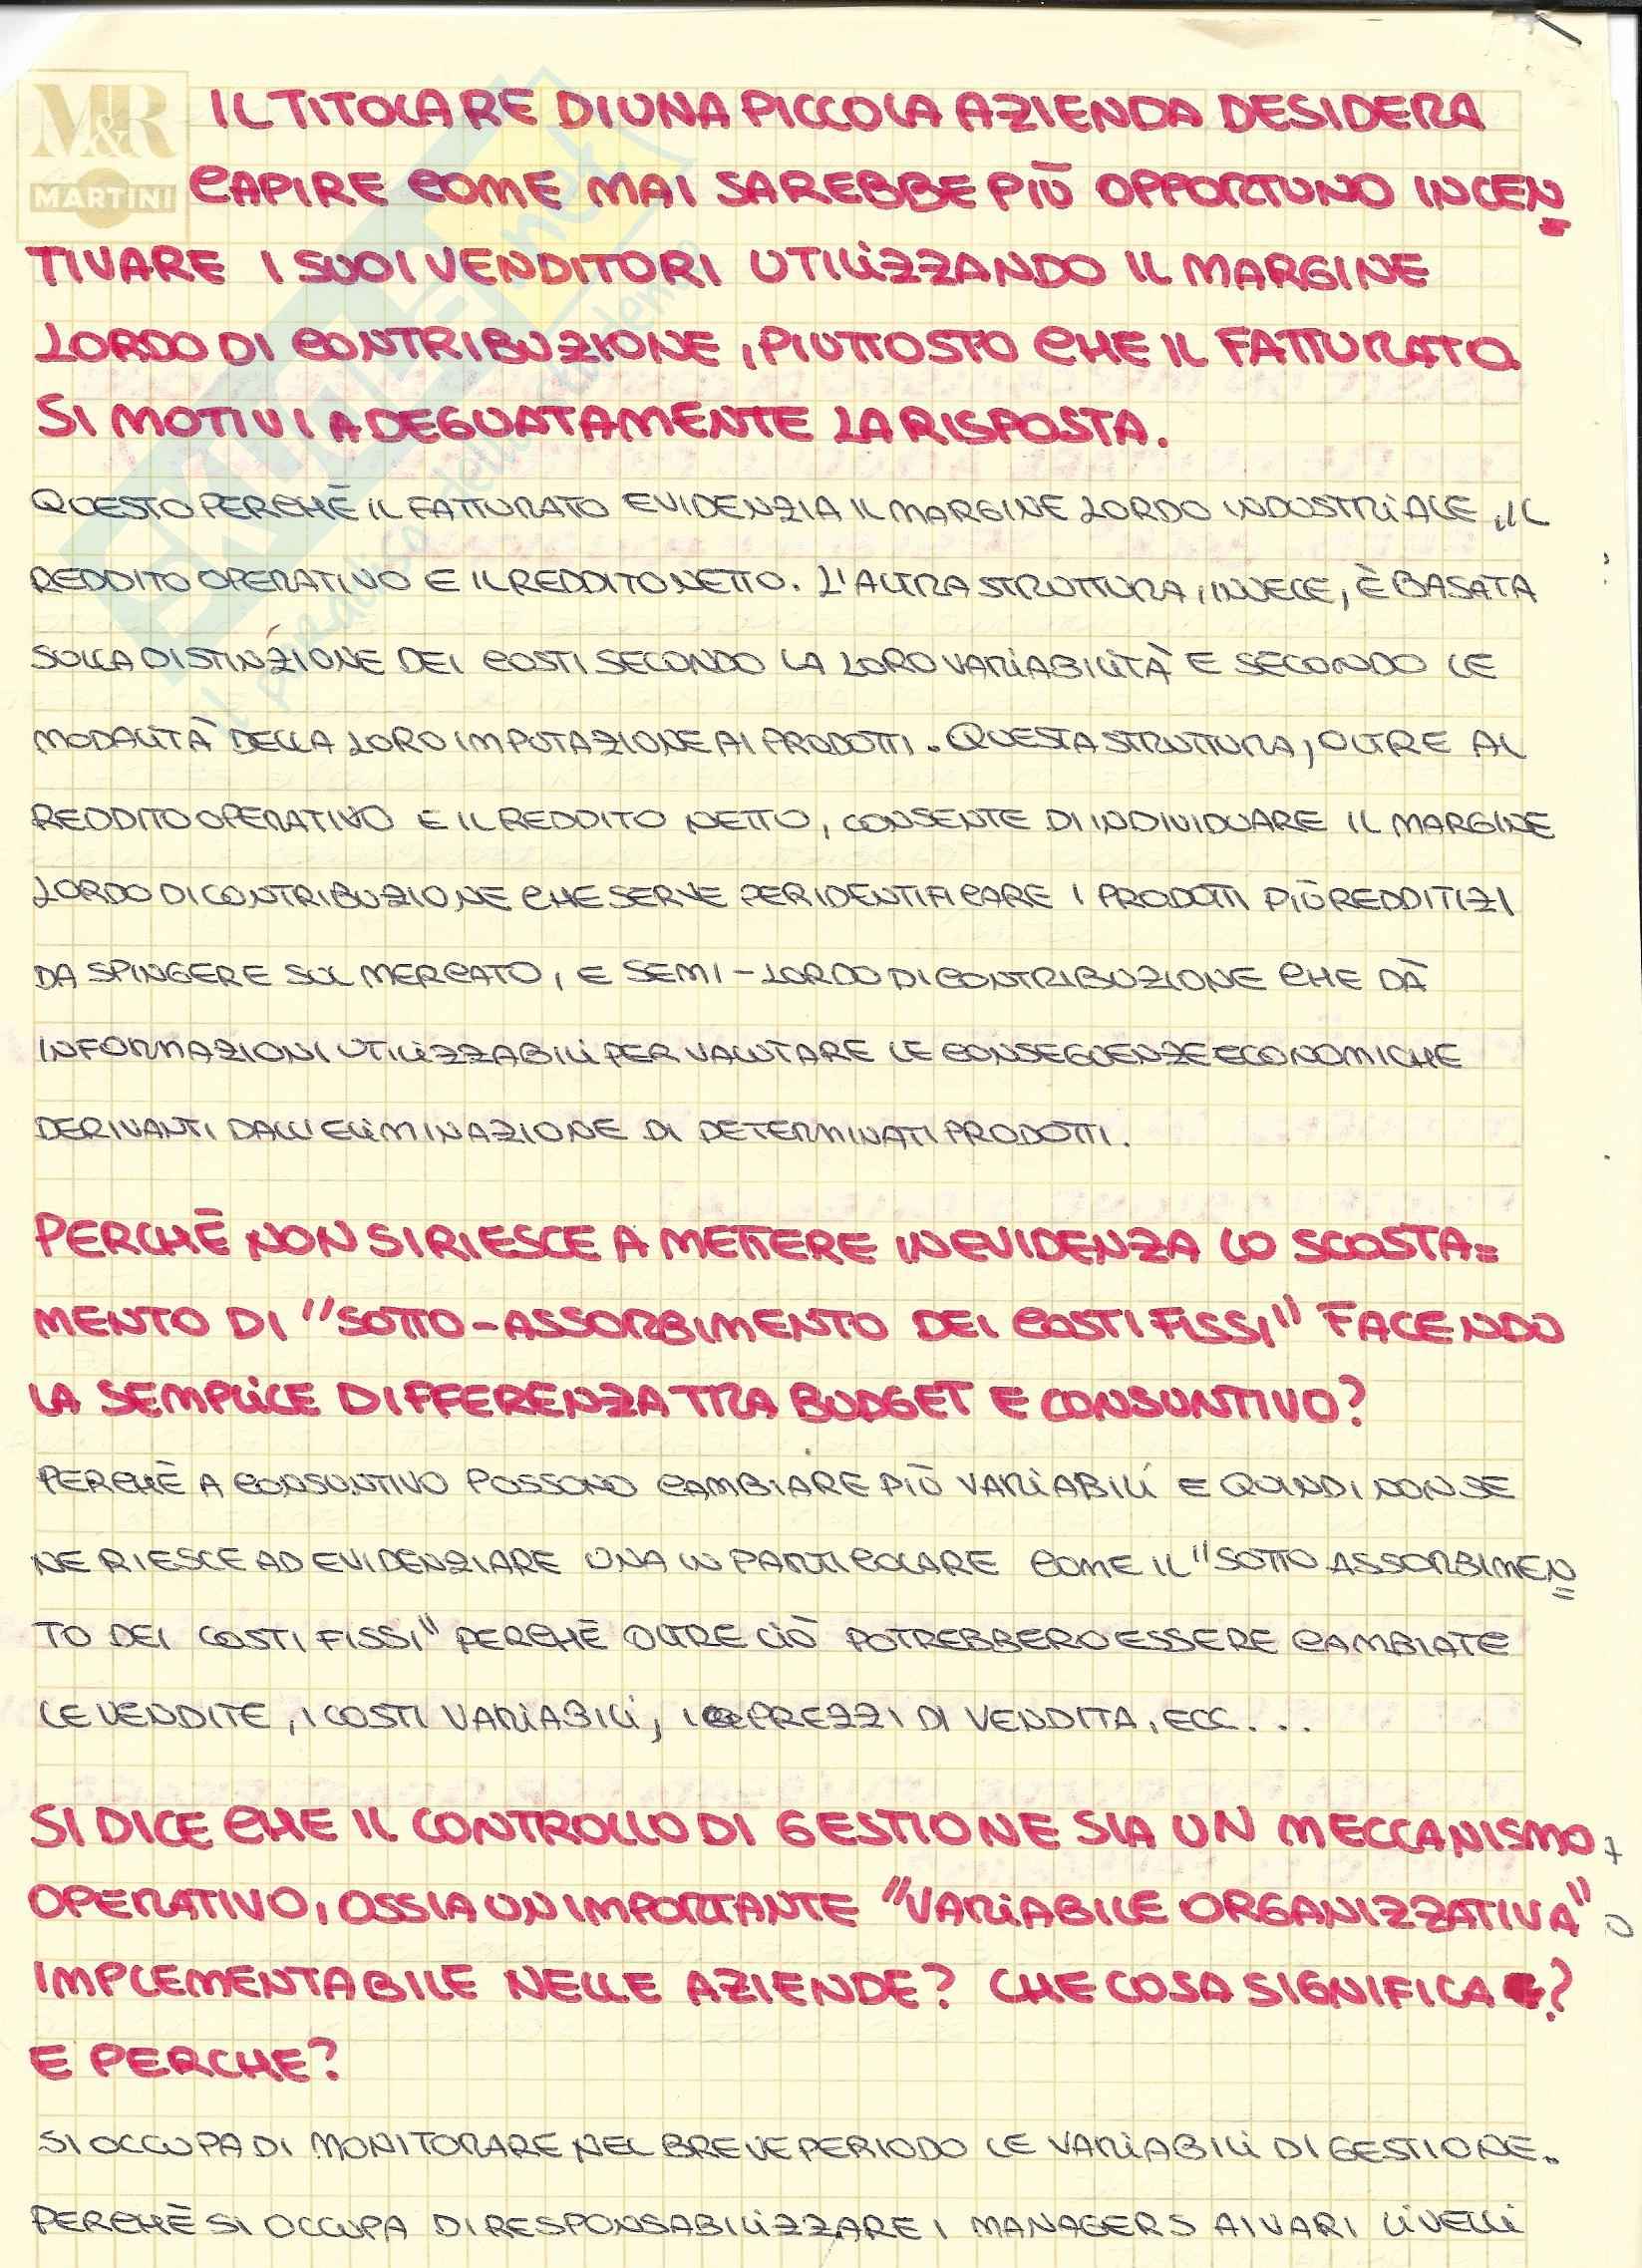 M&R
MARTINI
IL TITOLARE DI UNA PICCOLA AZIENDA DESIDERA
CAPIRE COME MAI SAREBBE PIÙ OPPORTUNO INCEN=
TIVARE I SUOI VENDITORI UTILIZZANDO IL MARGINE
LORDO DI CONTRIBUZIONE, PIUTTOSTO CHE IL FATTURATO.
SI MOTIVI ADEGUATAMENTE LA RISPOSTA.
QUESTO PERCHÈ IL FATTURATO EVIDENZIA IL MARGINE LORDO INDUSTRIALE, IL
REDDITO OPERATIVO E IL REDDITO NETTO. L'ALTRA STRUTTURA, INVECE, È BASATA
SULLA DISTINZIONE DEI COSTI SECONDO LA LORO VARIABILITÀ E SECONDO LE
MODALITÀ DELLA LORO IMPUTAZIONE AI PRODOTTI. QUESTA STRUTTURA, OLTRE AL
REDDITO OPERATIVO E IL REDDITO NETTO, CONSENTE DI INDIVIDUARE IL MARGINE
LORDO DI CONTRIBUZIONE CHE SERVE PER IDENTIFICARE I PRODOTTI PIÙ REDDITIZI
DA SPINGERE SUL MERCATO, E SEMI-LORDO DI CONTRIBUZIONE CHE DÀ
INFORMAZIONI UTILIZZABILI PER VALUTARE LE CONSEGUENZE ECONOMICHE
DERIVANTI DALL'ELIMINAZIONE DI DETERMINATI PRODOTTI.
PERCHÈ NON SI RIESCE A METTERE IN EVIDENZA LO SCOSTA=
MENTO DI "SOTTO-ASSORBIMENTO DEI COSTI FISSI" FACENDO
LA SEMPLICE DIFFERENZA TRA BUDGET E CONSUNTIVO?
PERCHÈ A CONSUNTIVO POSSONO CAMBIARE PIÙ VARIABILI E QUINDI NON SE
NE RIESCE AD EVIDENZIARE UNA IN PARTICOLARE COME IL "SOTTO ASSORBIMEN=
TO DEI COSTI FISSI" PERCHÈ OLTRE CIÒ POTREBBERO ESSERE CAMBIATE
LE VENDITE, I COSTI VARIABILI, I PREZZI DI VENDITA, ECC...
SI DICE CHE IL CONTROLLO DI GESTIONE SIA UN MECCANISMO
OPERATIVO, OSSIA UN IMPORTANTE "VARIABILE ORGANIZZATIVA"
IMPLEMENTABILE NELLE AZIENDE? CHE COSA SIGNIFICA?
E PERCHE?
SI OCCUPA DI MONITORARE NEL BREVE PERIODO LE VARIABILI DI GESTIONE.
PERCHÈ SI OCCUPA DI RESPONSABILIZZARE I MANAGERS AI VARI LIVELLI